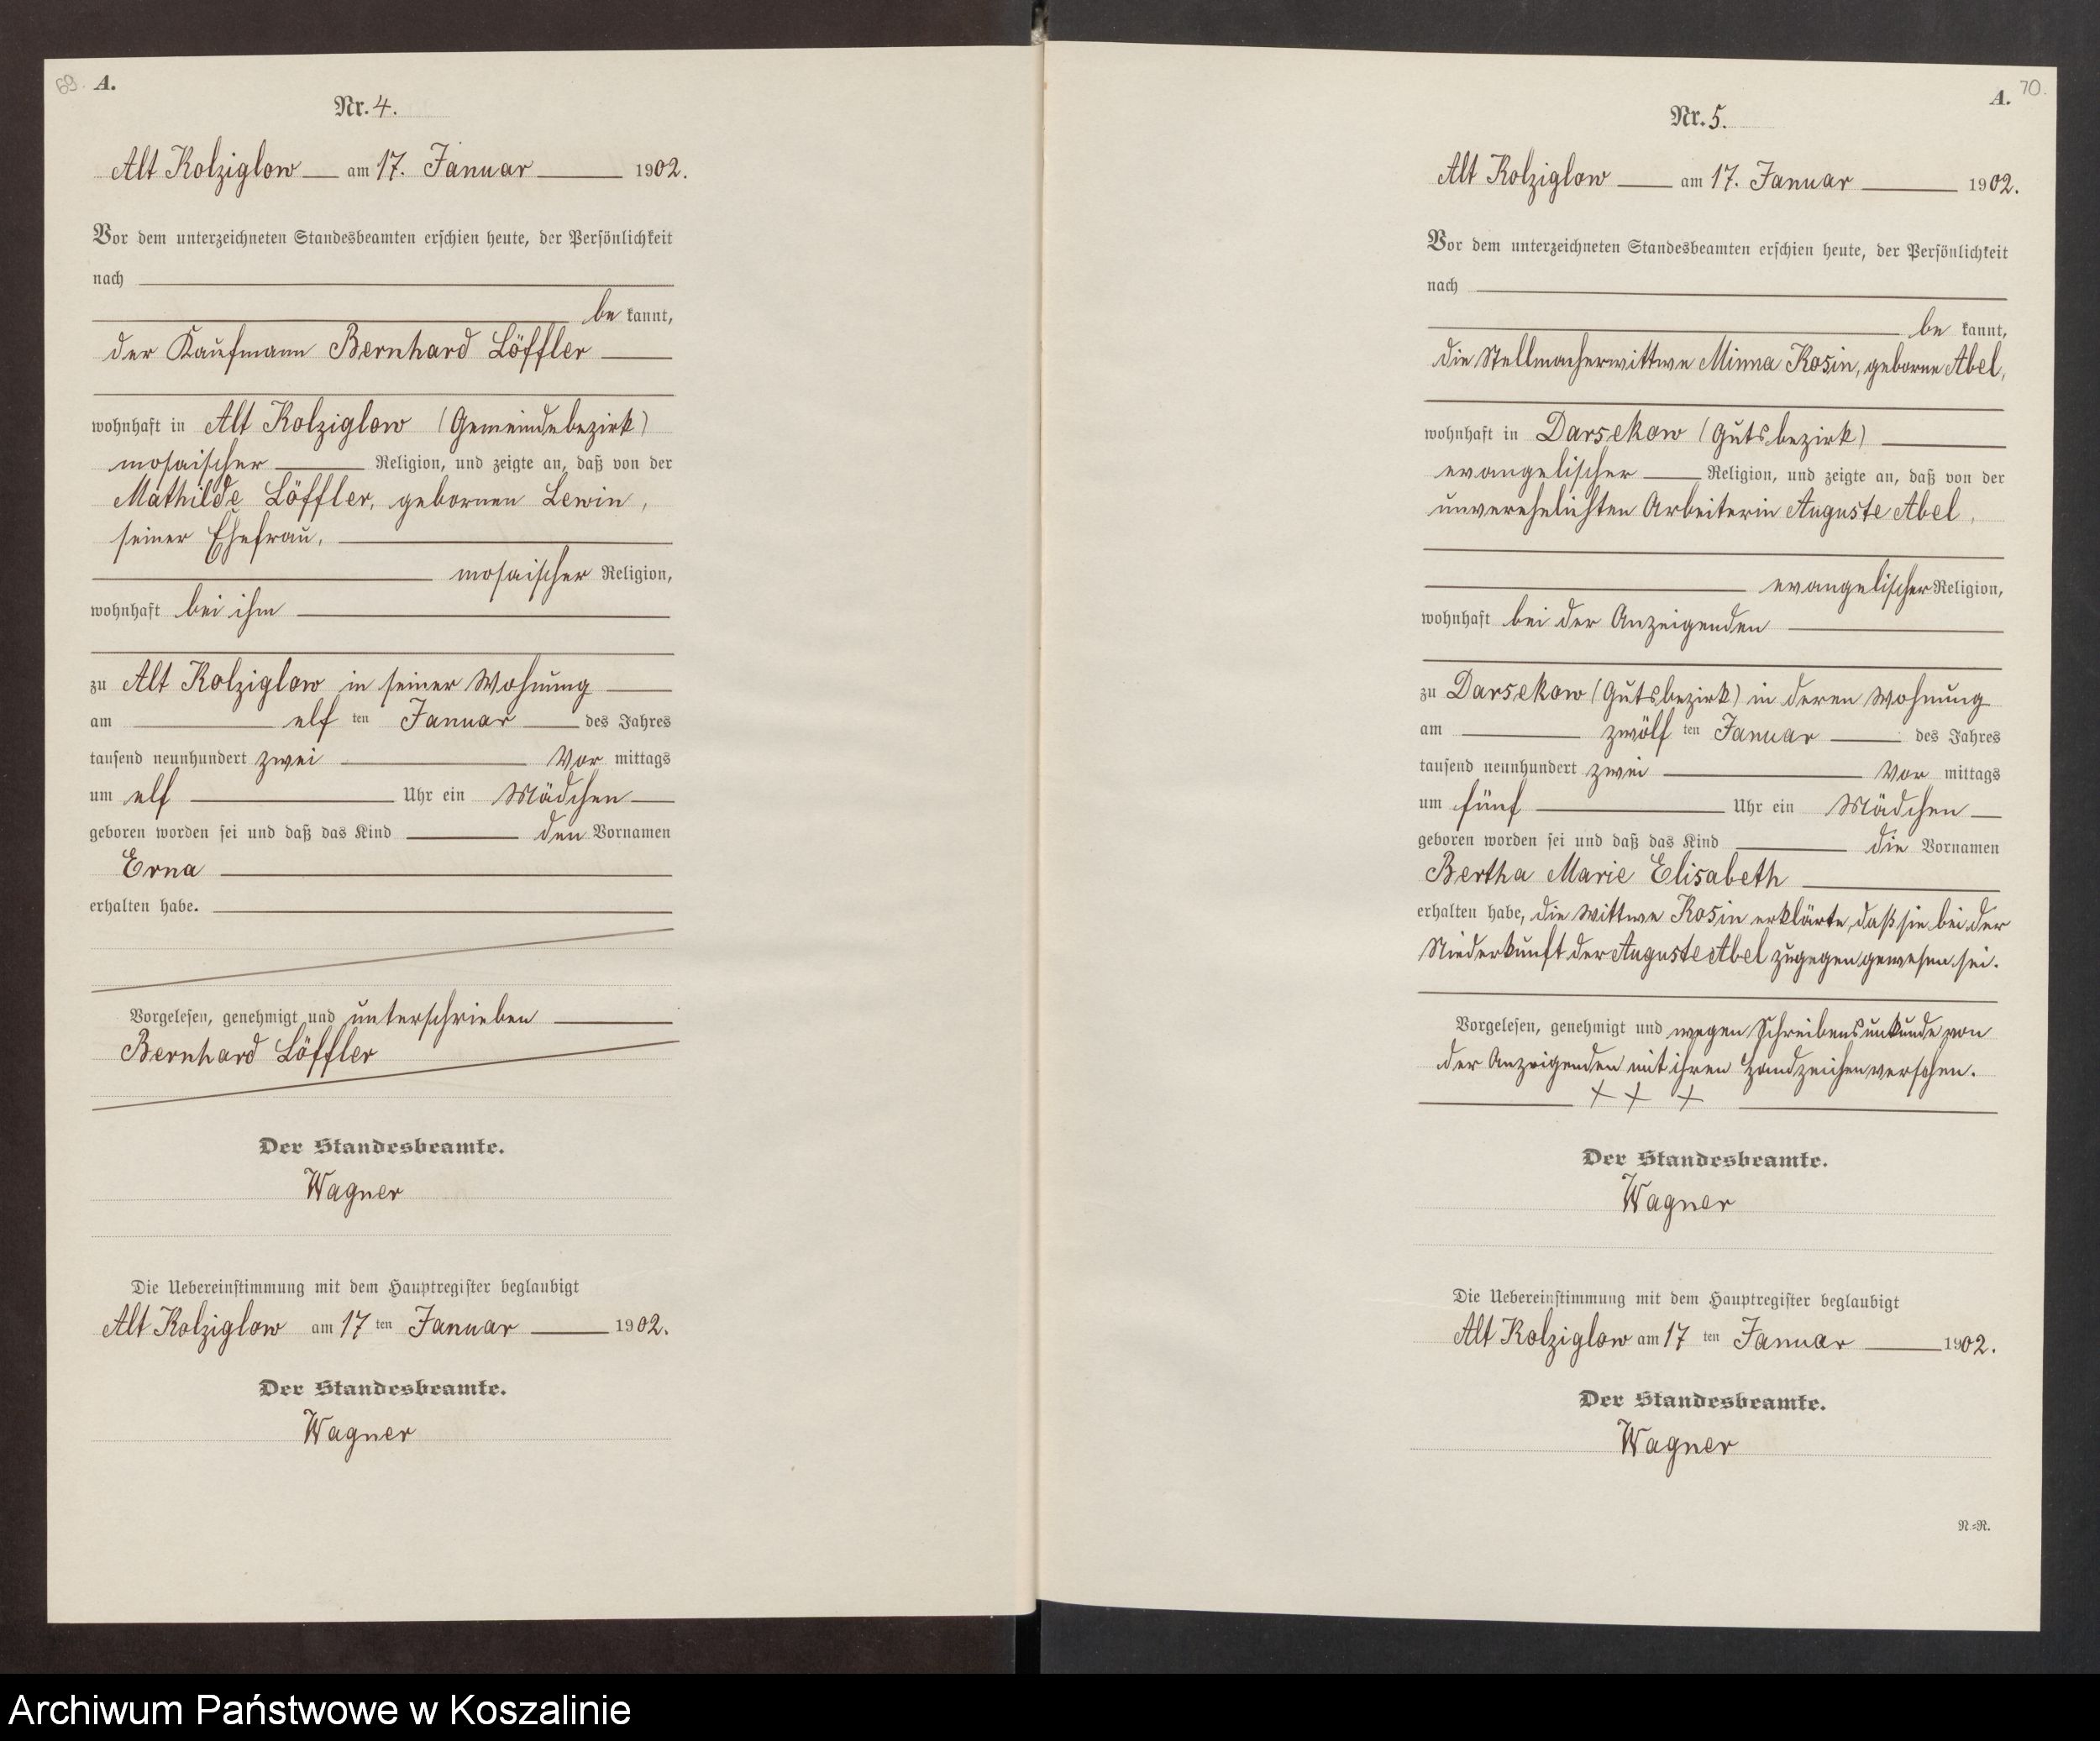 69. A.
Nr. 4.
Alt Kolziglow am 17. Januar 1902.
Vor dem unterzeichneten Standesbeamten erschien heute, der Persönlichkeit
nach
be kannt,
der Kaufmann Bernhard Löffler
wohnhaft in Alt Kolziglow (Gemeindebezirk)
mosaischer Religion, und zeigte an, daß von der
Mathilde Löffler, gebornen Lewin,
seiner Ehefrau,
mosaischer Religion,
wohnhaft bei ihm
zu Alt Kolziglow in seiner Wohnung
am elf ten Januar des Jahres
tausend neunhundert zwei Vor mittags
um elf Uhr ein Mädchen
geboren worden sei und daß das Kind den Vornamen
Erna
erhalten habe.
Vorgelesen, genehmigt und unterschrieben
Bernhard Löffler
Der Standesbeamte.
Wagner
Die Uebereinstimmung mit dem Hauptregister beglaubigt
Alt Kolziglow am 17 ten Januar 1902.
Der Standesbeamte.
Wagner
A. 70.
Nr. 5.
Alt Kolziglow am 17. Januar 1902.
Vor dem unterzeichneten Standesbeamten erschien heute, der Persönlichkeit
nach
be kannt,
die Stellmacherwittwe Minna Kosin, geborne Abel,
wohnhaft in Darsekow (Gutsbezirk)
evangelischer Religion, und zeigte an, daß von der
unverehelichten Arbeiterin Auguste Abel,
evangelischer Religion,
wohnhaft bei der Anzeigenden
zu Darsekow (Gutsbezirk) in deren Wohnung
am zwölf ten Januar des Jahres
tausend neunhundert zwei Vor mittags
um fünf Uhr ein Mädchen
geboren worden sei und daß das Kind die Vornamen
Bertha Marie Elisabeth
erhalten habe, die Wittwe Kosin erklärte, daß sie bei der
Niederkunft der Auguste Abel zugegen gewesen sei.
Vorgelesen, genehmigt und wegen Schreibensunkunde von
der Anzeigenden mit ihren Handzeichen versehen.
+ + +
Der Standesbeamte.
Wagner
Die Uebereinstimmung mit dem Hauptregister beglaubigt
Alt Kolziglow am 17 ten Januar 1902.
Der Standesbeamte.
Wagner
N.=R.
Archiwum Państwowe w Koszalinie